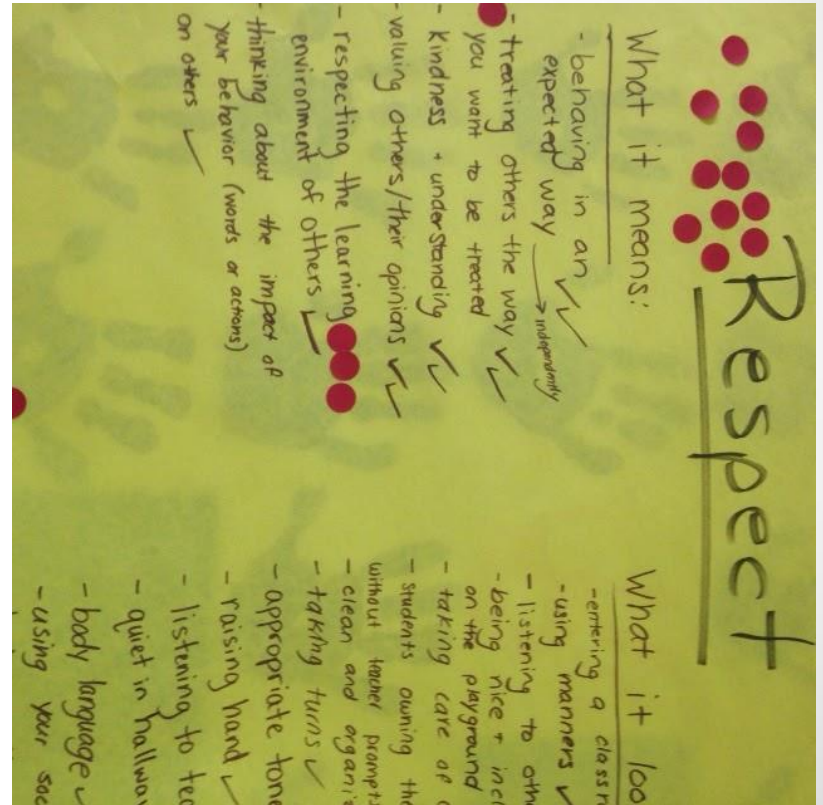 Respect
What it means:
- behaving in an ✓✓
expected way → independently
- treating others the way ✓✓
you want to be treated
- kindness + understanding ✓✓
- valuing others/their opinions ✓✓
- respecting the learning
environment of others ✓
- thinking about the impact of
your behavior (words or actions)
on others ✓
What it loo
- entering a classr
- using manners ✓
- listening to oth
- being nice + incl
on the playground
- taking care of
- students owning the
without teacher prompts
- clean and organiz
- taking turns ✓
- appropriate tone
- raising hand ✓
- listening to tea
- quiet in hallwa
- body language ✓
- using your soc